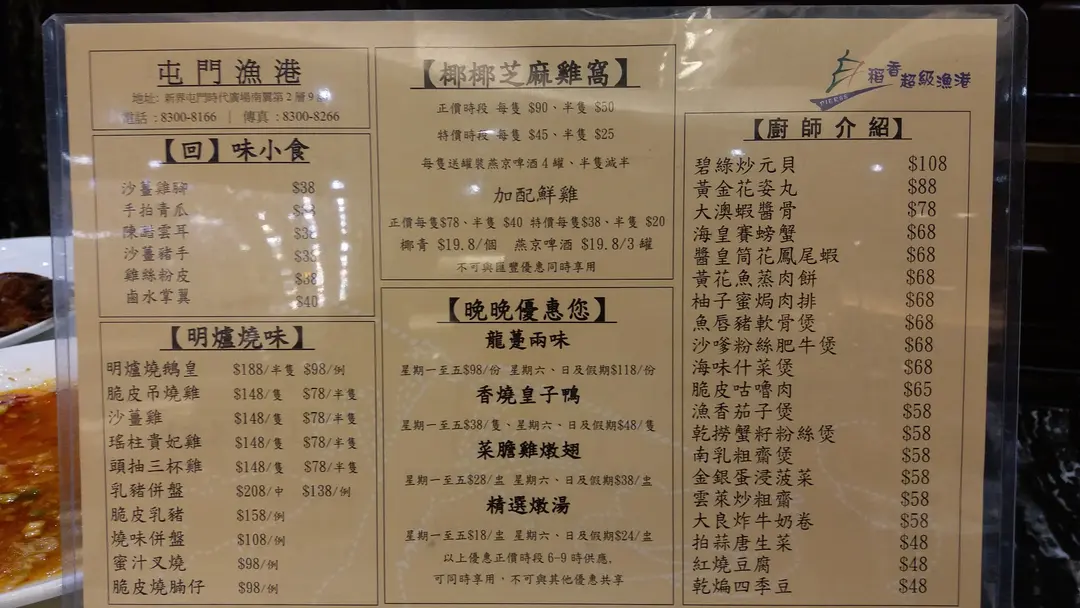 屯門漁港
地址: 新界屯門時代廣場南翼第2層9
電話:8300-8166 | 傳真:8300-8266
【回】味小食
沙薑雞腳 $38
手拍青瓜
陳醋雲耳
沙薑豬手
雞絲粉皮
鹵水掌翼 $40
【明爐燒味】
明爐燒鵝皇 $188/半隻 $98/例
脆皮吊燒雞 $148/隻 $78/半隻
沙薑雞 $148/隻 $78/半隻
瑤柱貴妃雞 $148/隻 $78/半隻
頭抽三杯雞 $148/隻 $78/半隻
乳豬併盤 $208/中 $138/例
脆皮乳豬 $158/例
燒味併盤 $108/例
蜜汁叉燒 $98/例
脆皮燒腩仔 $98/例
【椰椰芝麻雞窩】
正價時段 每隻 $90、半隻 $50
特價時段 每隻 $45、半隻 $25
每隻送罐裝燕京啤酒4罐、半隻減半
加配鮮雞
正價每隻$78、半隻 $40 特價每隻$38、半隻 $20
椰青 $19.8/個 燕京啤酒 $19.8/3罐
不可與匯豐優惠同時享用
【晚晚優惠您】
龍躉兩味
星期一至五$98/份 星期六、日及假期$118/份
香燒皇子鴨
星期一至五$38/隻、星期六、日及假期$48/隻
菜膽雞燉翅
星期一至五$28/盅 星期六、日及假期$38/盅
精選燉湯
星期一至五$18/盅 星期六、日及假期$24/盅
以上優惠正價時段6-9時供應,
可同時享用,不可與其他優惠共享
稻香超級漁港
【廚師介紹】
碧綠炒元貝 $108
黃金花姿丸 $88
大澳蝦醬骨 $78
海皇賽螃蟹 $68
醬皇筒花鳳尾蝦 $68
黃花魚蒸肉餅 $68
柚子蜜焗肉排 $68
魚唇豬軟骨煲 $68
沙嗲粉絲肥牛煲 $68
海味什菜煲 $68
脆皮咕嚕肉 $65
漁香茄子煲 $58
乾撈蟹籽粉絲煲 $58
南乳粗齋煲 $58
金銀蛋浸菠菜 $58
雲萊炒粗齋 $58
大良炸牛奶卷 $58
拍蒜唐生菜 $48
紅燒豆腐 $48
乾煸四季豆 $48